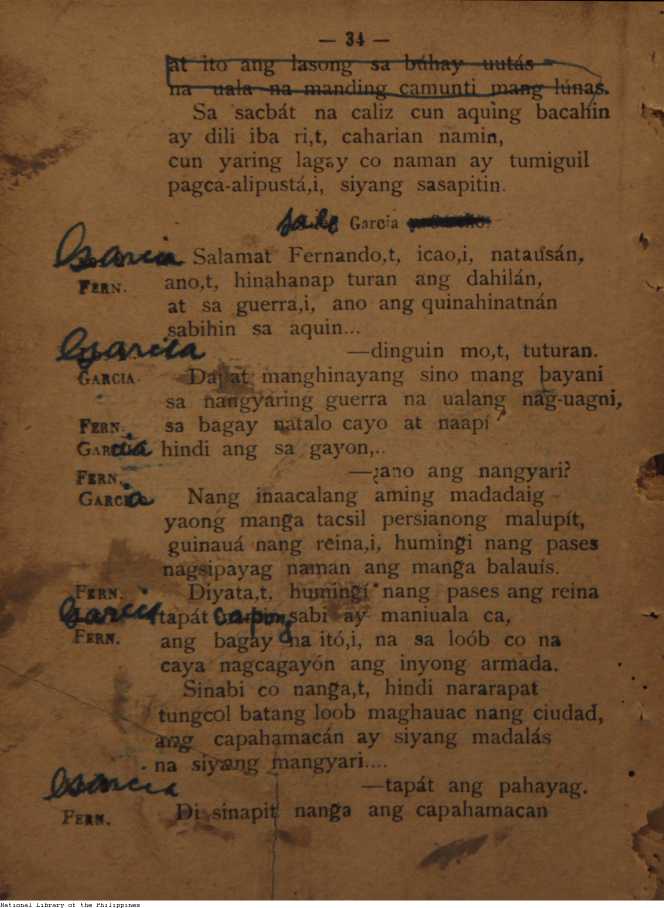 — 34 —
at ito ang lasong sa báhay uutás
na uala na manding camunti mang lúnas.
Sa sacbát na caliz cun aquing bacahin
ay dili iba ri,t, caharian namin,
cun yaring lagay co naman ay tumiguil
pagca-alipustá,i, siyang sasapitin.
sale Garcia
Garcia Salamat Fernando,t, icao,i, nataúsán,
FERN. ano,t, hinahanap turan ang dahilán,
at sa guerra,i, ano ang quinahinatnán
sabihin sa aquin...
Garcia —dinguin mo,t, tuturan.
GARCIA Dapat manghinayang sino mang bayani
sa nangyaring guerra na ualang nag-uagni,
FERN. sa bagay natalo cayo at naapí?
GARCIA hindi ang sa gayon,..
FERN. —¿ano ang nangyari?
GARCIA Nang inaacalang aming madadaig
yaong mang̃a tacsil persianong malupít,
guinauá nang reina,i, huming̃i nang pases
nagsipayag naman ang mang̃a balauis.
FERN. Diyata,t, huming̃í nang pases ang reina
Garcia tapát capong sabi ay maniuala ca,
FERN. ang bagay na itó,i, na sa loób co na
caya nagcagayón ang inyong armada.
Sinabi co nang̃a,t, hindi nararapat
tungcol batang loob maghauac nang ciudad,
ang capahamacán ay siyang madalás
na siyang mangyari....
Garcia —tapát ang pahayag.
FERN. Di sinapit nang̃a ang capahamacan
National Library of the Philippines